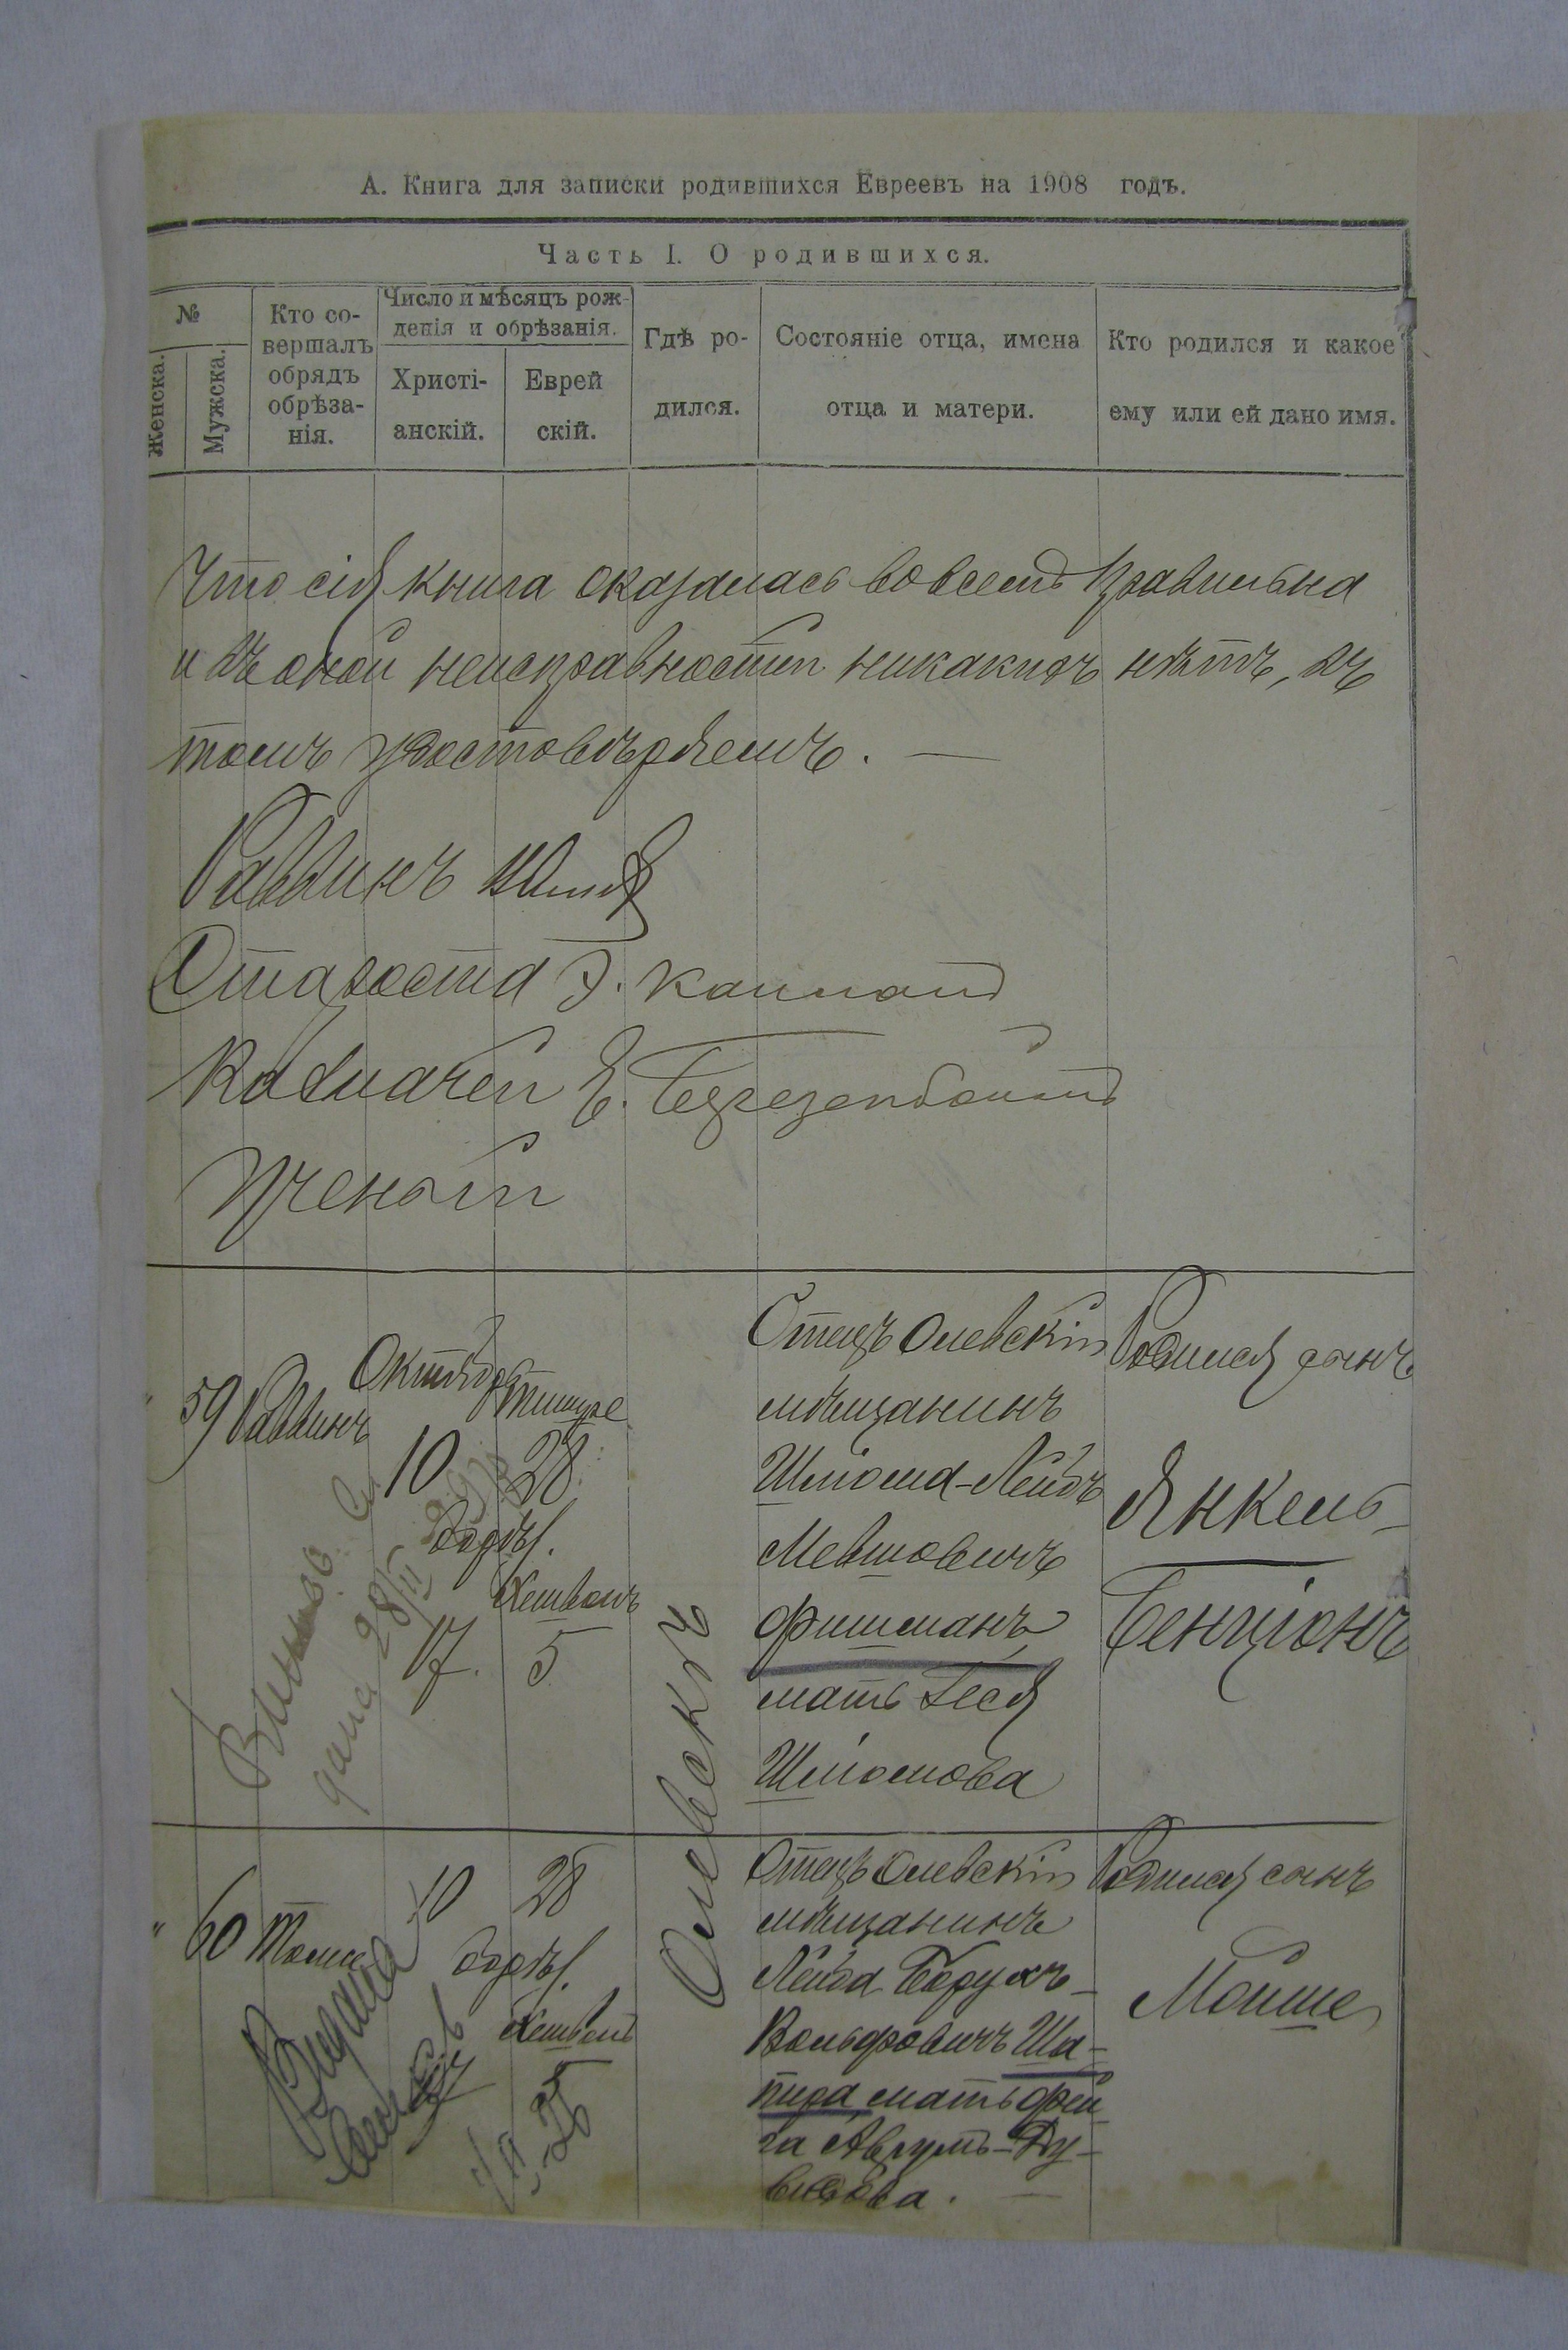 А. Книга для записки родившихся Евреевъ на 1908 годъ.
Часть I. О родившихся.
№
Женска.
Мужска.
Кто со-
вершалъ
обрядъ
обрѣза-
нія.
Число и мѣсяцъ рож-
денія и обрѣзанія.
Христі-
анскій.
Еврей
скій.
Гдѣ ро-
дился.
Состояніе отца, имена
отца и матери.
Кто родился и какое
ему или ей дано имя.
Что сія книга оказалась во всемъ правильна
и въ оной неисправностей никакихъ нѣтъ, въ
томъ удостовѣряемъ. —
Раввинъ
Староста
Казначей
Ученый
" 59 Раввинъ
Октября
10
обрѣз.
17.
Тишре
28
Хешвонъ
5
Олевскъ
Отецъ Олевскій
мѣщанинъ
Шліома-Лейбъ
Мевшовичъ
Фишманъ
мать Геся
Шліомова
Родился сынъ
Янкель-
Бенціонъ
" 60 Тоже
10
обрѣз.
28
Хешвонъ
5
Отецъ Олевскій
мѣщанинъ
Лейба Борухъ-
Вольфовичъ Ша-
пира мать Фей
га Аврумъ-Ду-
Родился сынъ
Мойше